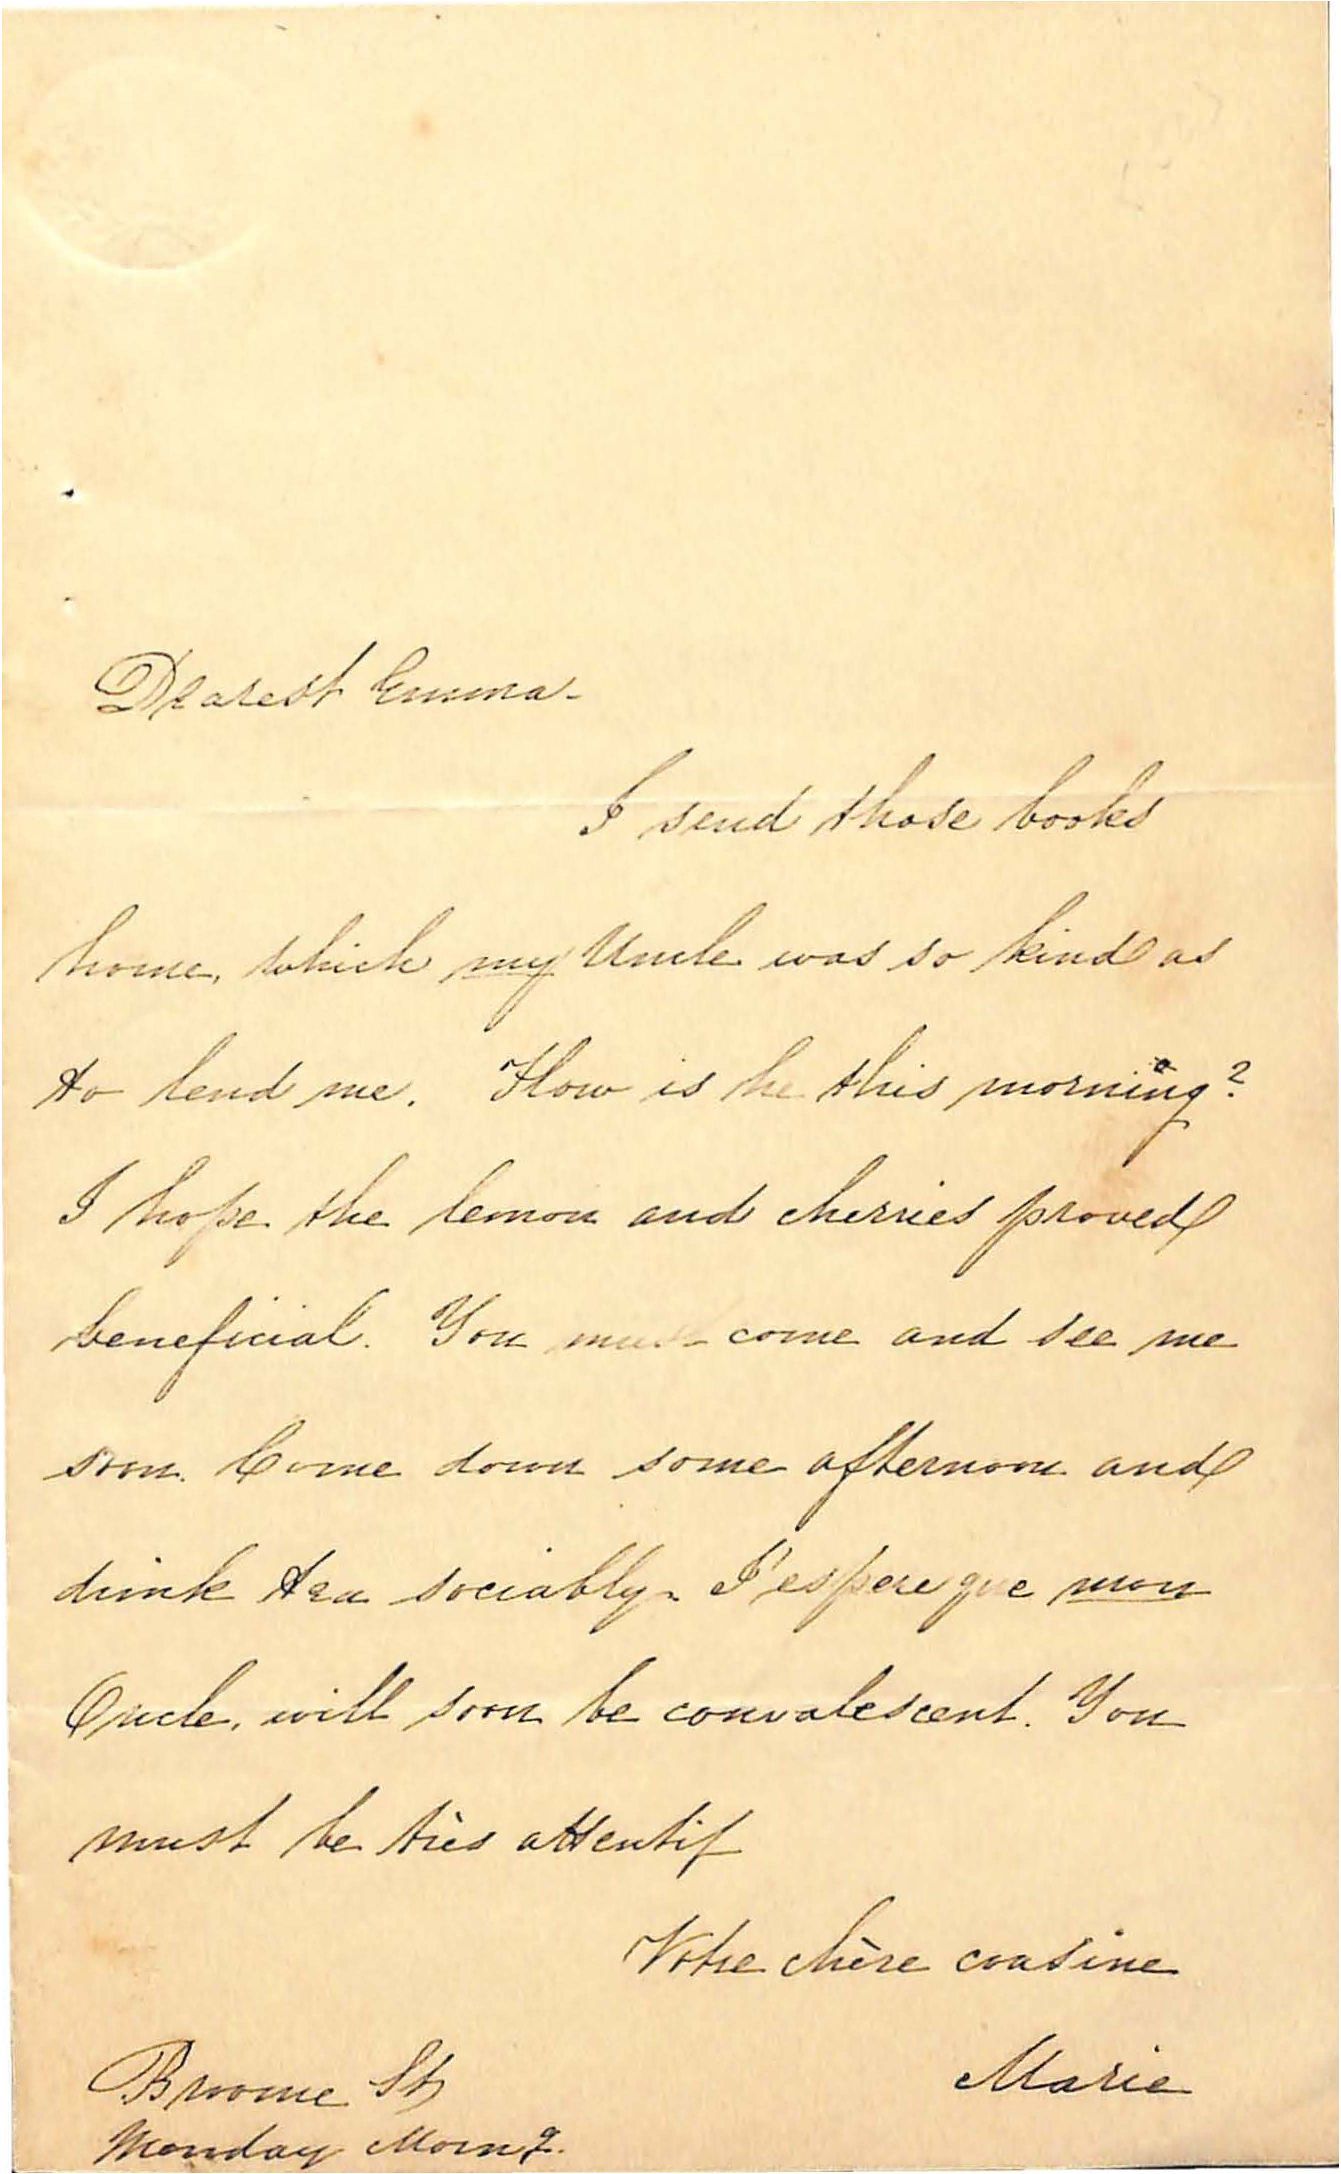 Dearest Emma -
I send those books
home, which my Uncle was so kind as
to lend me. How is he this morning?
I hope the lemon and cherries proved
beneficial. You must come and see me
soon. Come down some afternoon and
drink tea sociably. J'espere que mon
Oncle, will soon be convalescent. You
must be très attentif
Votre chère cousine
Marie
Broome St,
Monday Morng.